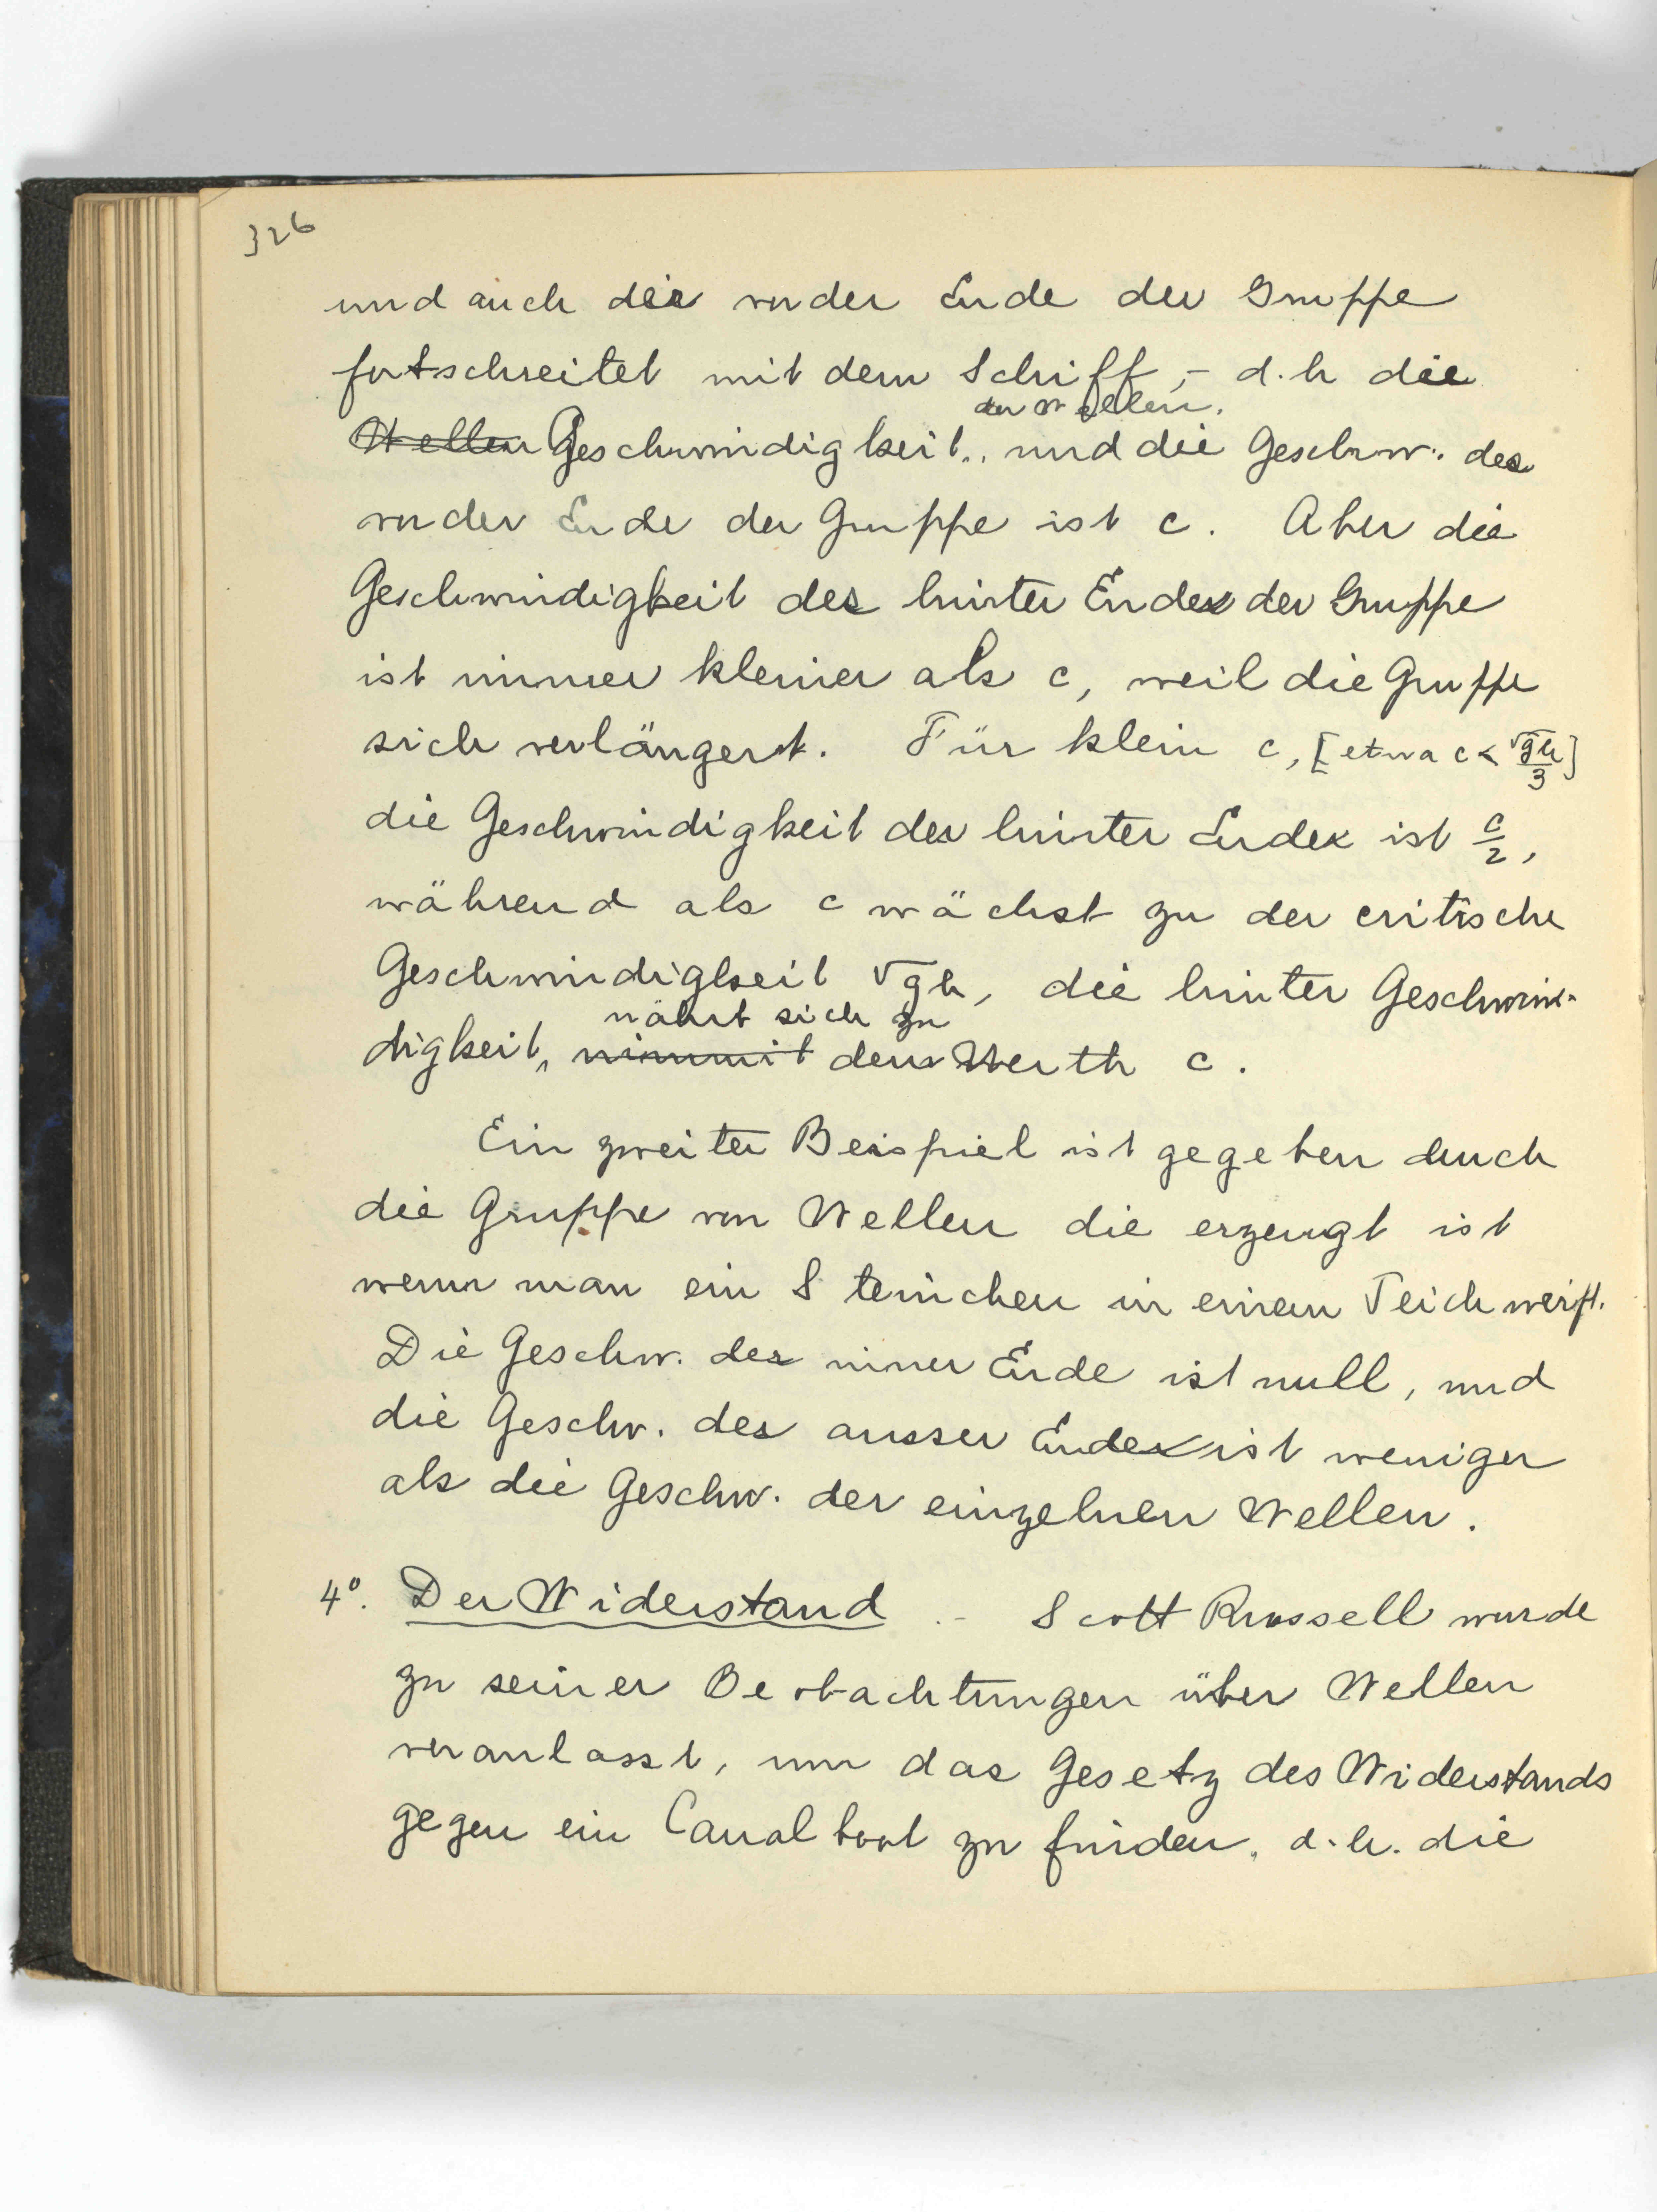 326
und auch die vorder Ende der Gruppe
fortschreitet mit dem Schiff,- d.h die
der Wellen.
Wellen Geschwindigkeit.. und die Geschw. des
vorder Ende der Gruppe ist c. Aber die
Geschwindigkeit des hinter Endes der Gruppe
ist immer kleiner als c, weil die Gruppe
sich verlängert. Für klein c, [etwa c < √gh/3]
die Geschwindigkeit der hinter Endes ist c/2,
während als c wächst zu der critische
Geschwindigkeit √gh, die hinter Geschwin-
nährt sich zu
digkeit, nimmit dem Werth c.
Ein zweiter Beispiel ist gegeben durch
die Gruppe von Wellen die erzeugt ist
wenn man ein Steinchen in einem Teich werft.
Die Geschw. des inner Ende ist null, und
die Geschw. des ausser Endes ist weniger
als die Geschw. der einzelnen Wellen.
4°. Der Widerstand .- Scott Russell wurde
zu seiner Beobachtungen über Wellen
veranlasst, um das Gesetz des Widerstands
gegen ein Canalboot zu finden, d.h. die